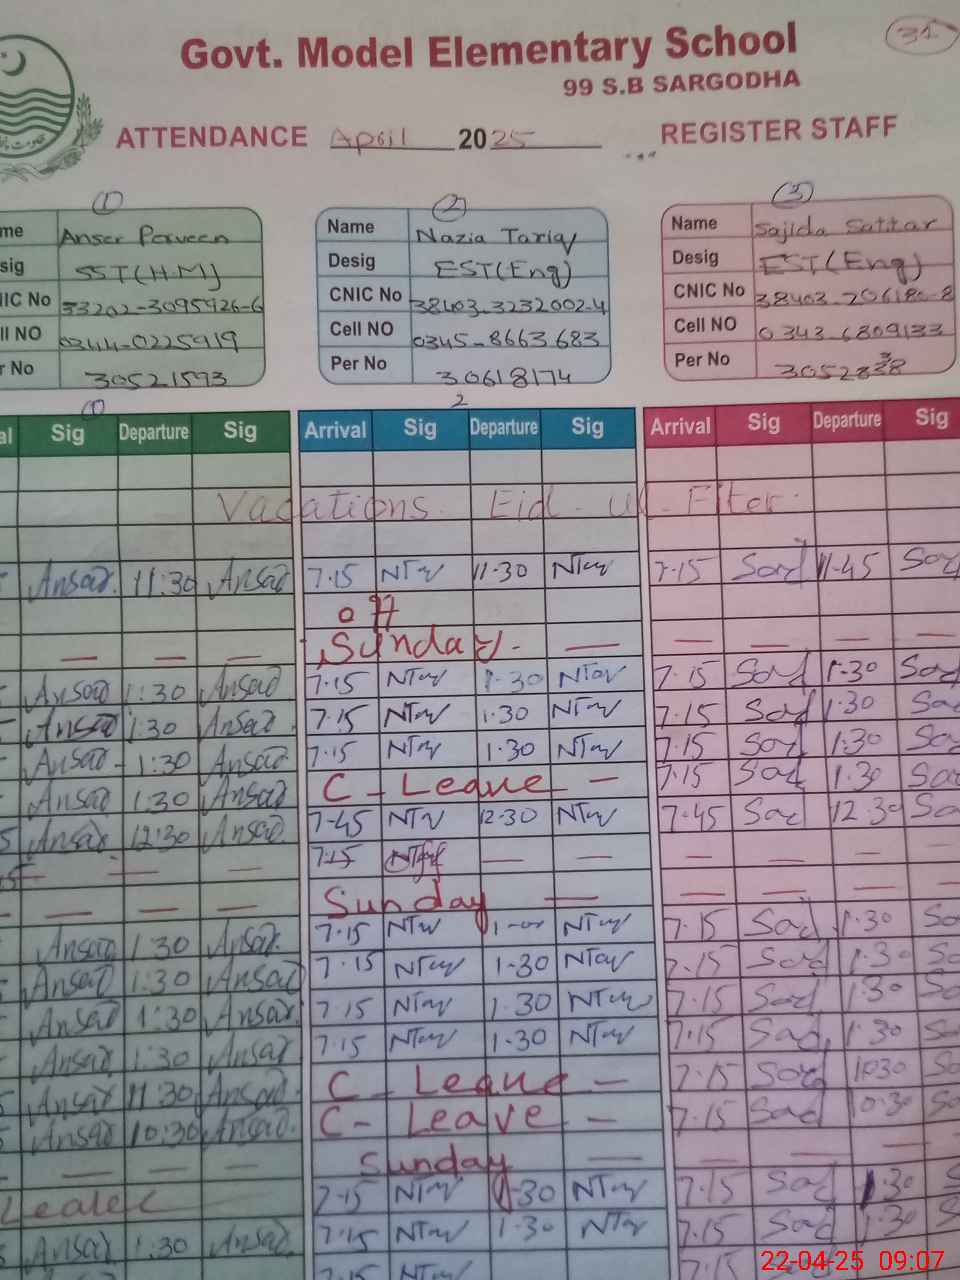 31
Govt. Model Elementary School
99 S.B SARGODHA
ATTENDANCE April 2025 REGISTER STAFF
1 2 3
me Anser Perveen Name Nazia Tariq Name Sajida Sattar
sig SST(H.M) Desig EST(Eng) Desig EST(Eng)
IIC No 33202-3095926-6 CNIC No 38403-3232002-4 CNIC No
ll NO 0344-0225919 Cell NO 0345-8663683 Cell NO 0343-6809133
r No 30521593 Per No 30618174 Per No
1 2
al Sig Departure Sig Arrival Sig Departure Sig Arrival Sig Departure Sig
Vacations Eid ul Fiter
Ansar 11:30 Ansar 7.15 NTar 11-30 NTar 7.15 Sad 11-45 Sad
off
— — — Sunday — — — — —
Ansar 1:30 Ansar 7.15 NTar 1-30 NTar 7.15 Sad 1-30 Sad
Ansar 1:30 Ansar 7.15 NTar 1.30 NTar 7.15 Sad 1.30 Sa
Ansar 1:30 Ansar 7.15 NTar 1.30 NTar 7.15 Sad 1.30 Sa
Ansar 1:30 Ansar C - Leave - 7.15 Sad 1.30 Sa
5 Ansar 12:30 Ansar 7-45 NTar 12-30 NTar 7.45 Sad 12.30 Sa
— — 7.15 — — — — —
— — — Sunday — — — — —
Ansar 1:30 Ansar 7.15 NTar NTar 7.15 Sad 1.30 Sa
Ansar 1:30 Ansar 7.15 NTar 1-30 NTar 7.15 Sad 1.30 Sa
Ansar 1:30 Ansar 7.15 NTar 1.30 NTar 7.15 Sad 1.30 Sa
Ansar 1:30 Ansar 7.15 NTar 1-30 NTar 7.15 Sad 1.30 Sa
Ansar 11:30 Ansar C - Leave - 7.15 Sad 1030 Sa
Ansar 10:30 Ansar C - Leave - 7.15 Sad 10.30 Sa
— — — Sunday — — — —
7-15 NTar 1-30 NTar 7.15 Sad 1.30 S
Ansar 1:30 Ansar 7.15 NTar 1-30 NTar 7.15 Sad 1.30 S
7.15 NTar 7.15 Sad
22-04-25 09:07